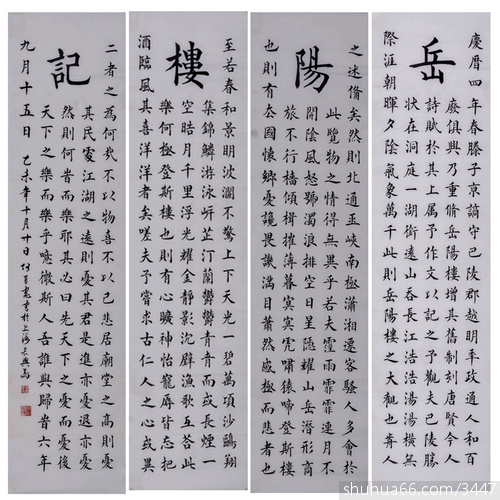 岳
慶曆四年春滕子京謫守巴陵郡越明年政通人和百
廢俱興乃重脩岳陽樓增其舊制刻唐賢今人
詩賦於其上屬予作文以記之予觀夫巴陵勝
狀在洞庭一湖銜遠山吞長江浩浩湯湯橫無
際涯朝暉夕陰氣象萬千此則岳陽樓之大觀也前人
陽
之述備矣然則北通巫峽南極瀟湘遷客騷人多會於
此覽物之情得無異乎若夫霪雨霏霏連月不
開陰風怒號濁浪排空日星隱耀山岳潛形商
旅不行檣傾楫摧薄暮冥冥虎嘯猿啼登斯樓
也則有去國懷鄉憂讒畏譏滿目蕭然感極而悲者也
樓
至若春和景明波瀾不驚上下天光一碧萬頃沙鷗翔
集錦鱗游泳岸芷汀蘭鬱鬱青青而或長煙一
空皓月千里浮光耀金靜影沉璧漁歌互答此
樂何極登斯樓也則有心曠神怡寵辱皆忘把
酒臨風其喜洋洋者矣嗟夫予嘗求古仁人之心或異
記
二者之為何哉不以物喜不以己悲居廟堂之高則憂
其民處江湖之遠則憂其君是進亦憂退亦憂
然則何時而樂耶其必曰先天下之憂而憂後
天下之樂而樂乎噫微斯人吾誰與歸時六年
九月十五日 乙未年十月廿日 書於上海
shuhua66.com/3447